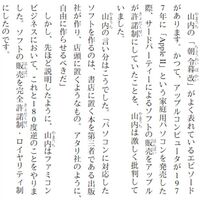 山内の「朝令暮改」がよく表れているエピソード
があります。かつて、アップルコンピュータが197
7年に「Apple II」という家庭用パソコンを発売した
際、サードパーティーによるソフトの販売をアップル
が許諾制にしていたことを、山内は激しく批判して
いました。
山内の言い分はこうでした。「パソコンに対応した
ソフトを作るのは、書店に置く本を第三者である出版
社が作り、店頭に置くようなもの。アタリ社のように、
自由に作らせるべきだ」
しかし、先ほど説明したように、山内はファミコン
ビジネスにおいて、これと180度逆のことをやりま
した。ソフトの販売を完全許諾制・ロイヤリティ制
にしたのです。